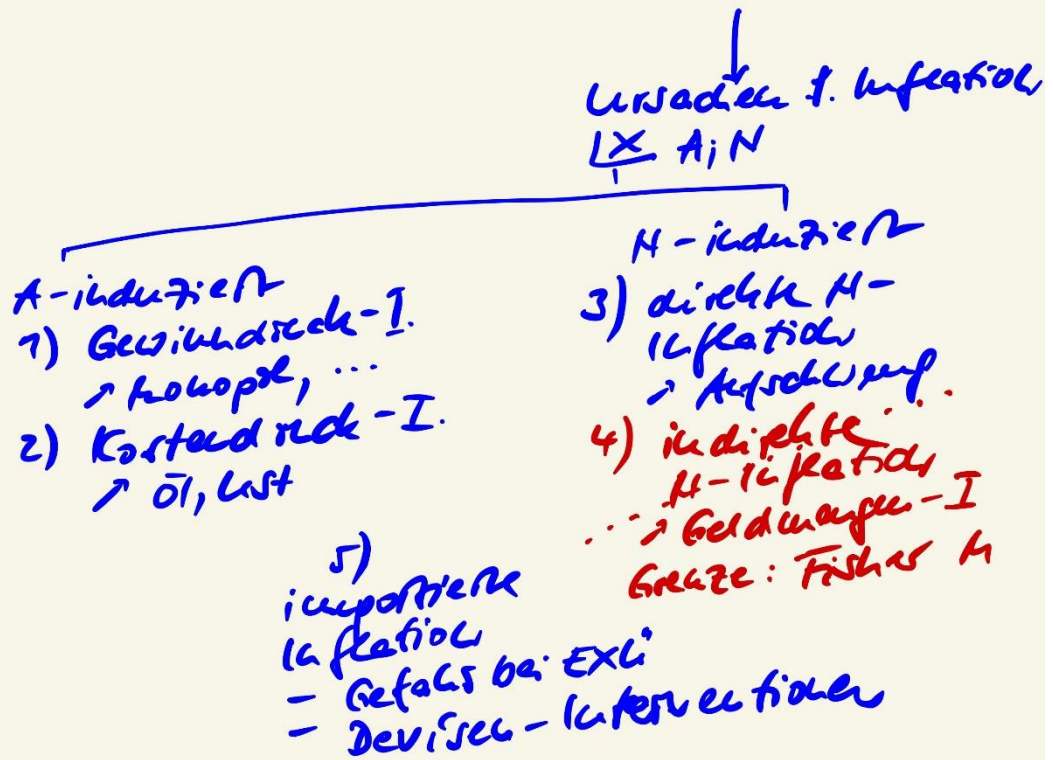 Ursachen f. Inflation
A; N
A-induziert
1) Gewinndruck-I.
↗ Monopol, ...
2) Kostendruck-I.
↗ Öl,
N-induziert
3) direkte N-
Inflation
↗ Aufschwung
4) indirekte ...
N-Inflation
... ↗ Geldmengen-I
Grenze: Fisher
5)
importierte
Inflation
- Gefahr bei EXÜ
- Devisen-Interventionen